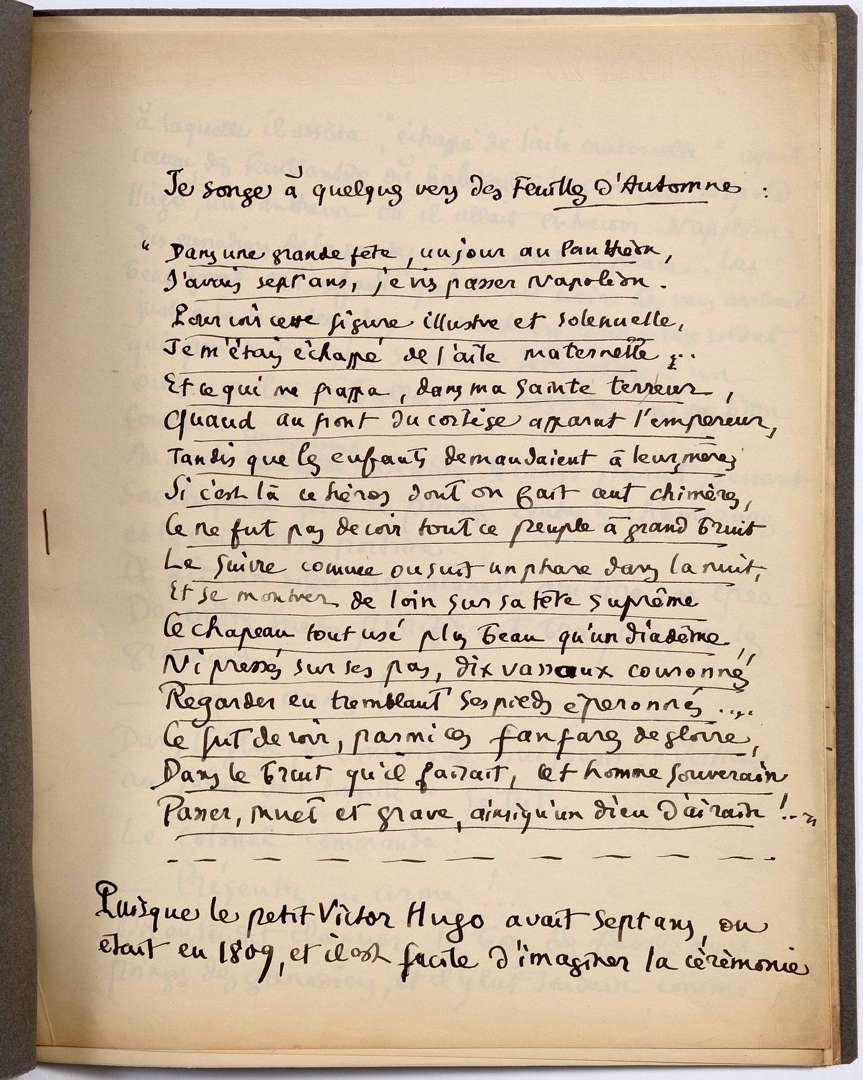 Je songe à quelques vers des Feuilles d'Automne :
" Dans une grande fête, un jour au Panthéon,
J'avais sept ans, je vis passer Napoléon.
Pour voir cette figure illustre et solennelle,
Je m'étais échappé de l'aile maternelle ;..
Et ce qui me frappa, dans ma sainte terreur,
Quand au front du cortège apparut l'empereur,
Tandis que les enfants demandaient à leurs mères
Si c'est là ce héros dont on fait cent chimères,
Ce ne fut pas de voir tout ce peuple à grand bruit
Le suivre comme on suit un phare dans la nuit,
Et se montrer de loin sur sa tête suprême
Ce chapeau tout usé plus beau qu'un diadème,
Ni pressés sur ses pas, dix vassaux couronnés
Regarder en tremblant ses pieds éperonnés ....
Ce fut de voir, parmi ces fanfares de gloire,
Dans le bruit qu'il faisait, cet homme souverain
Passer, muet et grave, ainsi qu'un dieu d'airain !.. "
Puisque le petit Victor Hugo avait sept ans, on
était en 1809, et il est facile d'imaginer la cérémonie